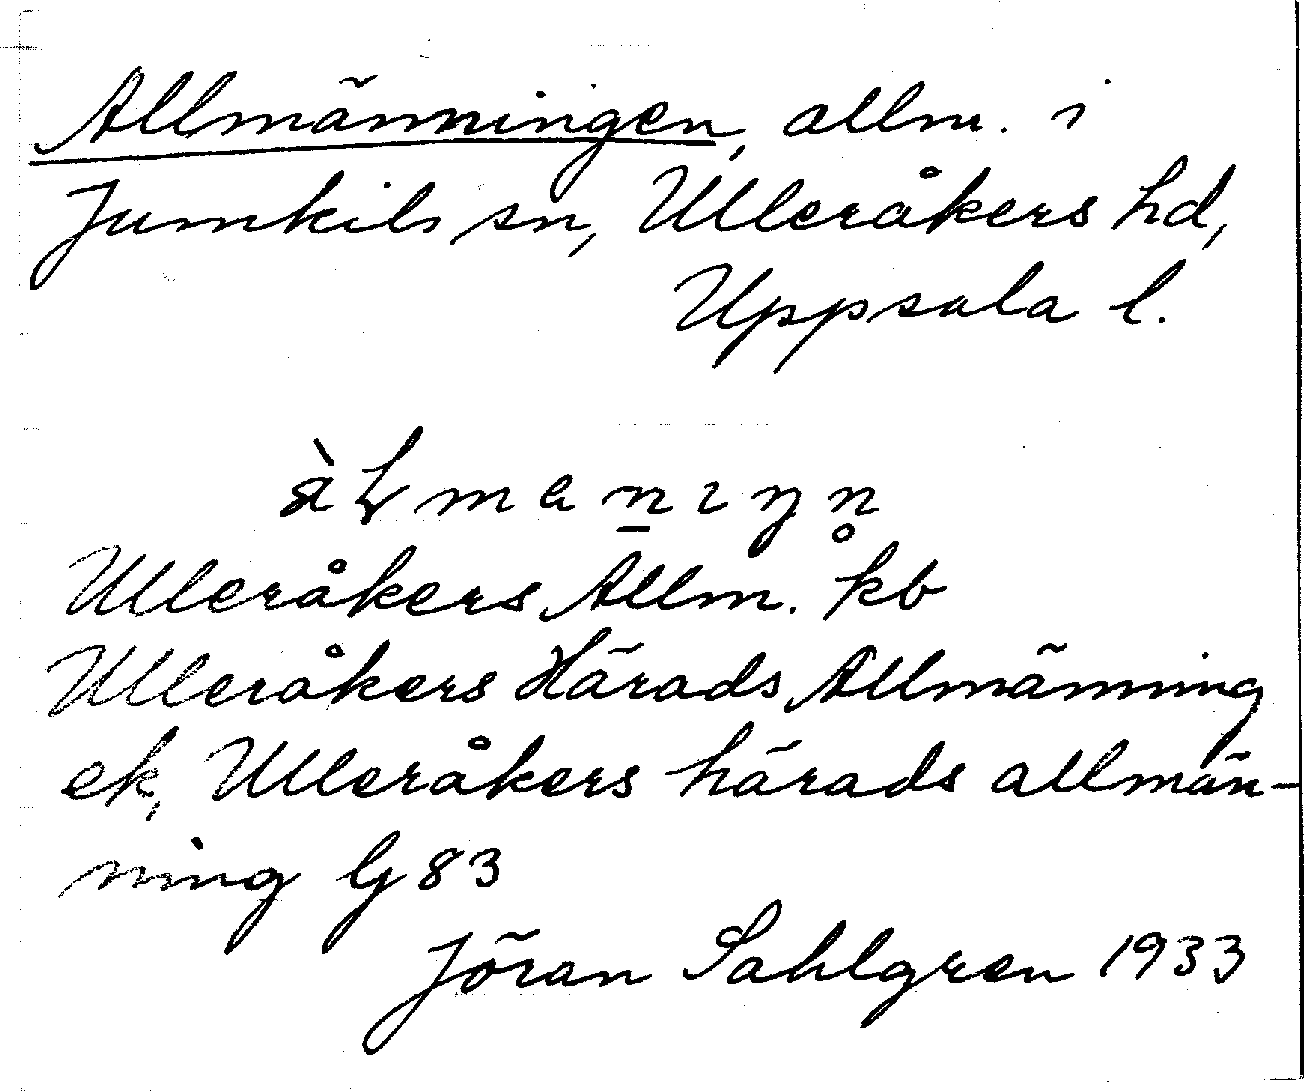 Allmänningen, allm. i
Jumkils sn, Ulleråkers hd,
Uppsala l.
Ulleråkers Allm. kb
Ulleråkers Härads Allmänning
ek, Ulleråkers härads allmän-
ning G 83
Jöran Sahlgren 1933